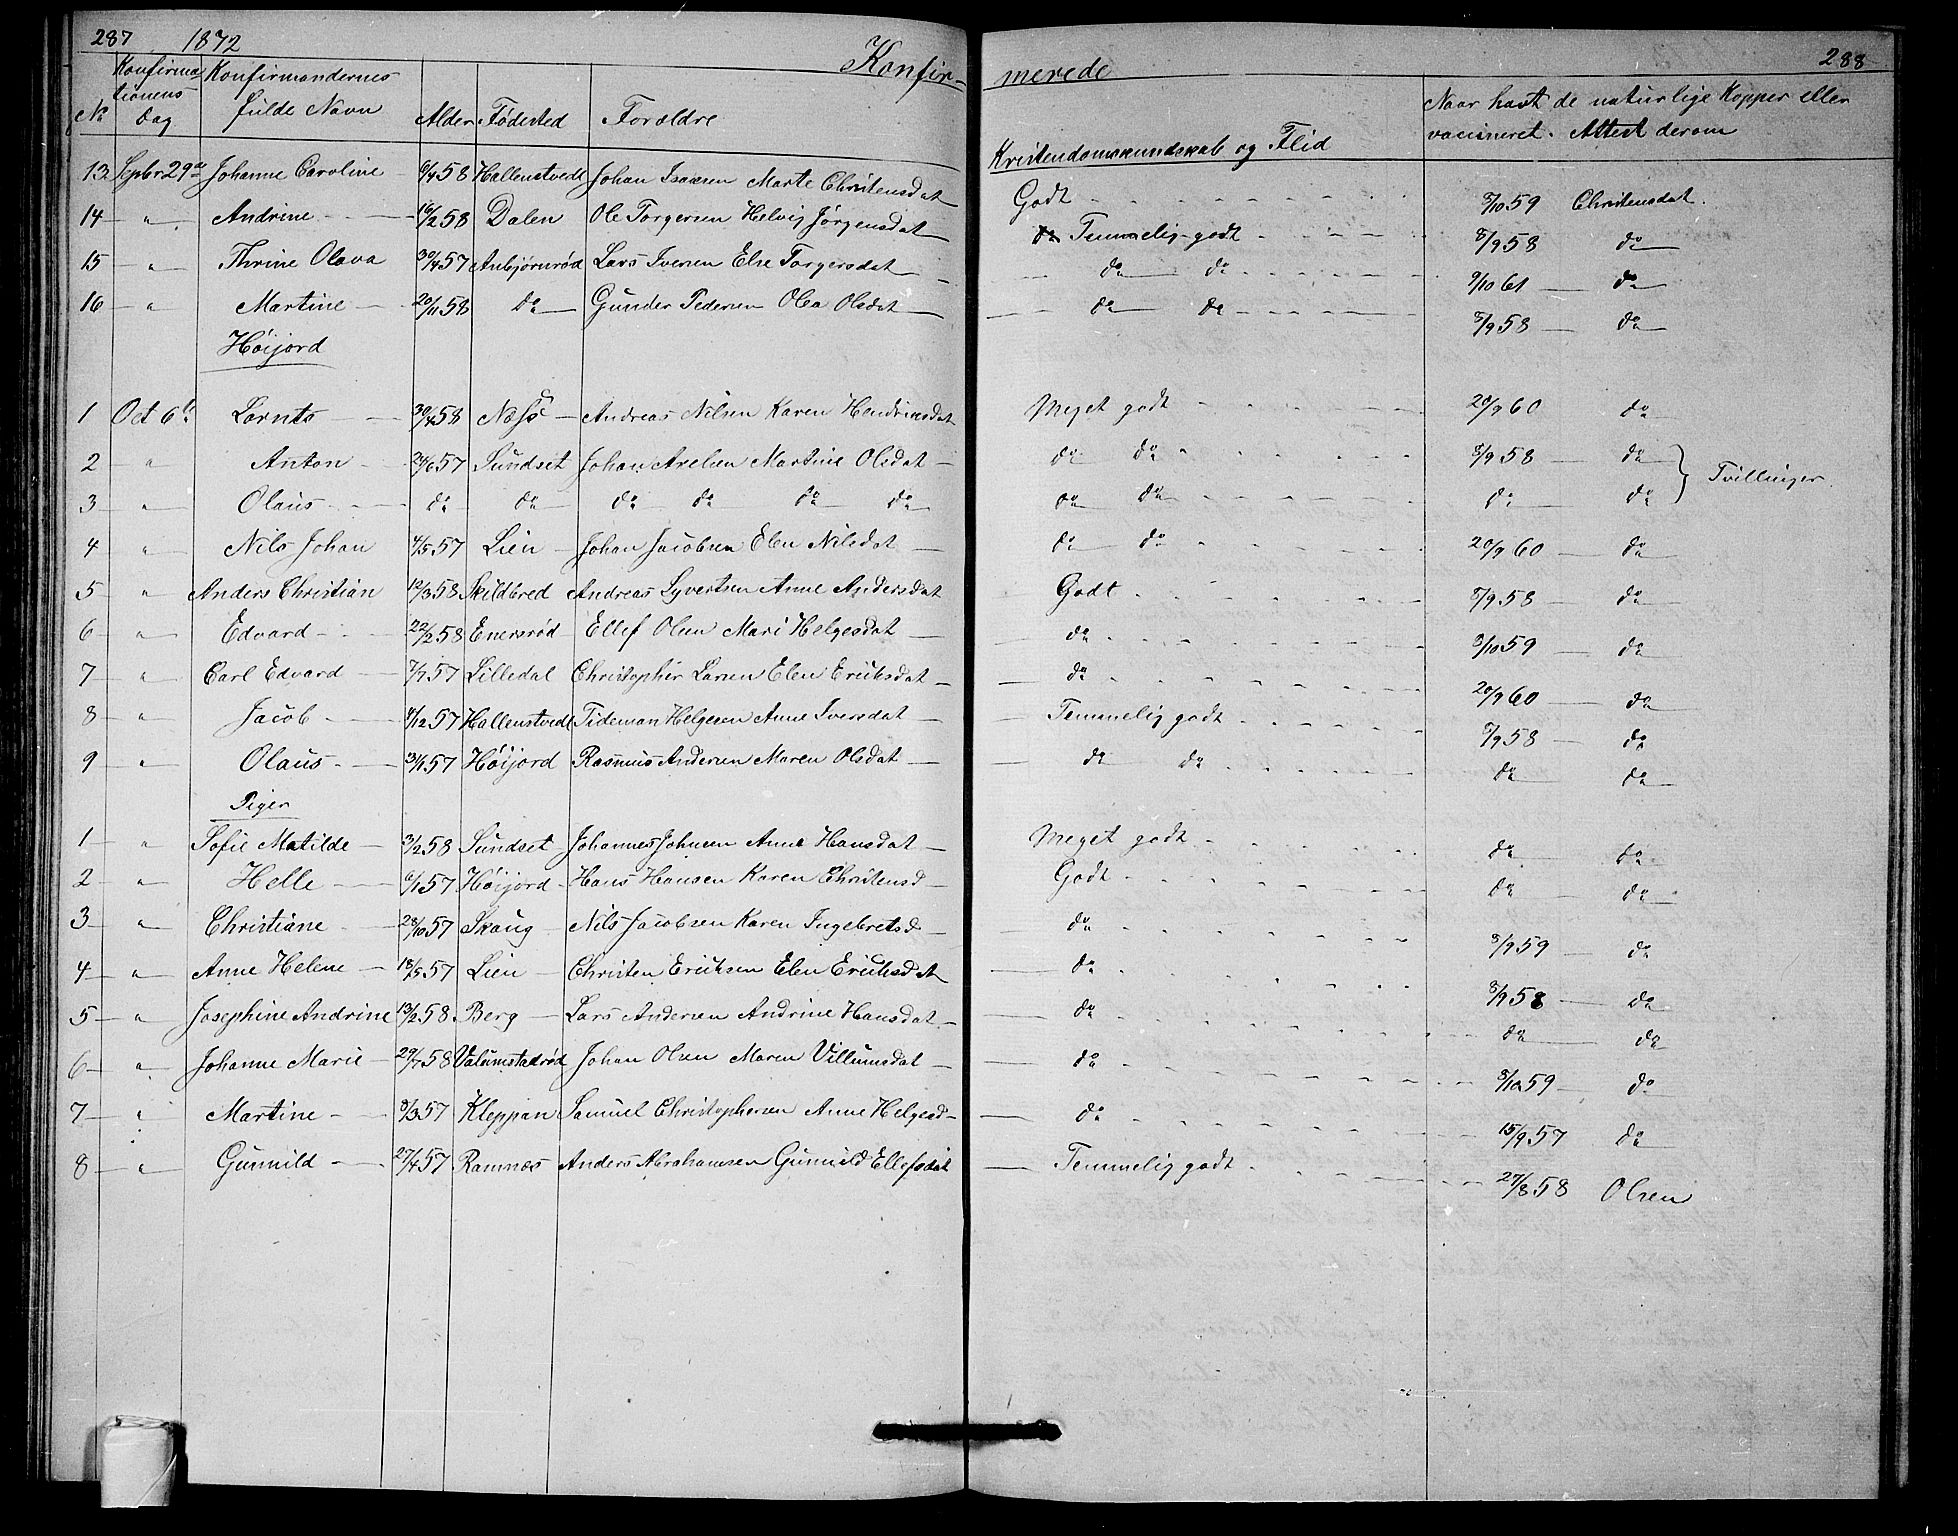 287 1872 Konfir-
No Konfirmationens Dag Konfirmandernes fulde Navn Alder Fødested Forældre
13 Septbr 29de Johanne Caroline 6/4 58 Hallenstvedt Johan Isaksen Marte Christensdat
14 " Andrine 16/2 58 Dalen Ole Torgersen Helvig Jørgensdat
15 " Thrine Olava 30/4 57 Anbjørnrød Lars Iversen Else Torgersdat
16 " Martine 20/11 58 do Gunder Pedersen Olea Olsdat
Høijord
1 Oct 6te Lornts 30/4 58 Næss Andreas Nilsen Karen Hendriksdat
2 " Anton 24/6 57 Sundset Johan Axelsen Martine Olsdat
3 " Olaus do do do do do do
4 " Nils Johan 4/5 57 Lien Johan Jacobsen Elen Nilsdat
5 " Anders Christian 12/3 58 Skildbred Andreas Syvertsen Anne Andersdat
6 " Edvard 22/2 58 Enersrød Ellef Olsen Mari Helgesdat
7 " Carl Edvard 7/7 57 Lilledal Christopher Larsen Elen Eriksdat
8 " Jacob 4/12 57 Hallenstvedt Tideman Helgesen Anne Iversdat
9 " Olaus 57 Høijord Rasmus Andersen Maren Olsdat
Piger
1 " Sofie Matilde 3/2 58 Sundset Johannes Johnsen Anne Hansdat
2 " Helle 6/1 57 Høijord Hans Hansen Karen Christensd
3 " Christiane 28/10 57 Skaug Nils Jacobsen Karen Ingebretsd
4 " Anne Helene 18/5 57 Lien Christen Eriksen Elen Eriksdat
5 " Josephine Andrine 13/2 58 Berg Lars Andersen Andrine Hansdat
6 " Johanne Marie 29/7 58 Valumstadrød Johan Olsen Maren Villumsdat
7 " Martine 8/3 57 Kleppan Samuel Christophersen Anne Helgesd
8 " Gunnild 27/4 57 Ramnæs Anders Abrahamsen Gunnild Ellefsdat
merede 288
Kristendomskundskab og Flid Naar havt de naturlige Kopper eller vaccineret. Attest derom
Godt 8/10 59 Christensdat.
Temmelig godt 8/9 58 do
do do 9/10 61 do
do do 8/9 58 do
Meget godt 20/9 60 do
do do 8/9 58 do } Tvillinger
do do do do
do do 20/9 60 do
Godt 8/9 58 do
do 8/10 59 do
do 20/9 60 do
Temmelig godt 8/9 58 do
do do do do
Meget godt do do
Godt do do
do 8/9 59 do
do 8/9 58 do
do do do
do 8/10 59 do
do 15/9 57 do
Temmelig godt 27/8 58 Olsen